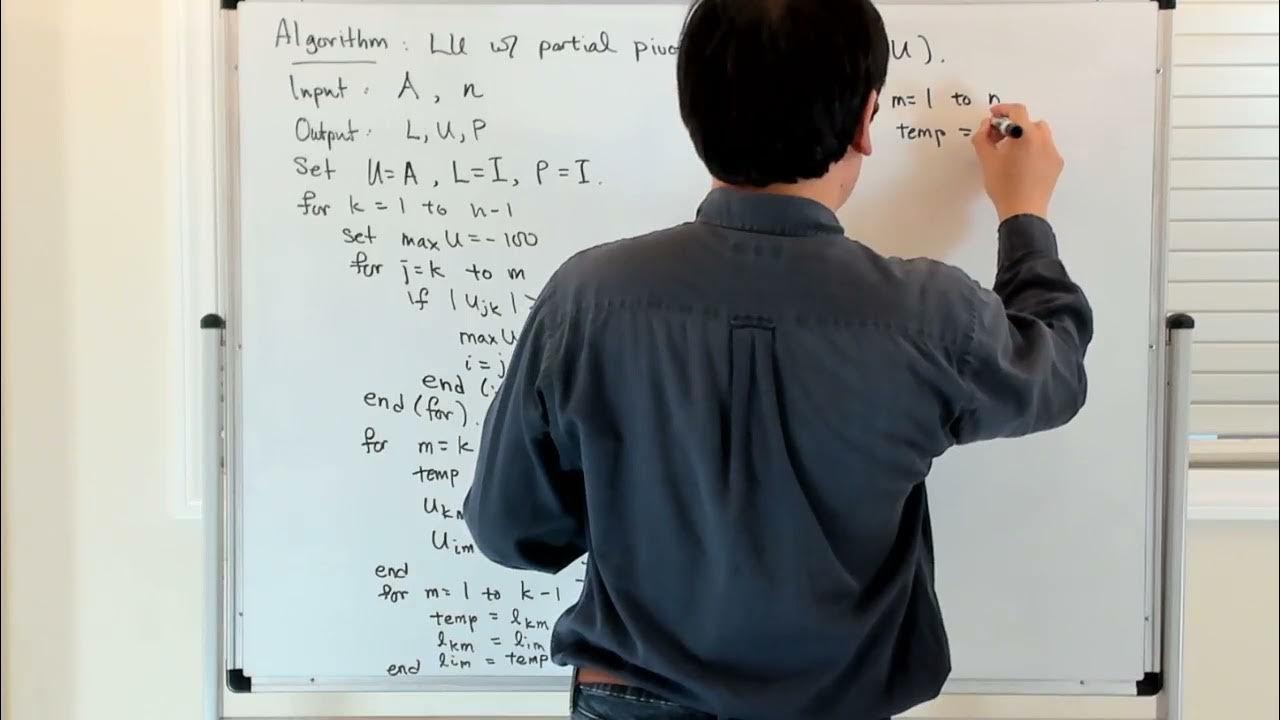 Algorithm : LU w/ partial pivo
Input : A , n
Output : L, U, P
Set U=A , L=I, P=I.
for k = 1 to n-1
set max U = -100
for j=k to m
if |u_jk| >
max U
i = j
end (i
end (for).
for m=k
temp
u_km
u_im
end
for m=1 to k-1
temp = l_km
l_km = l_im
l_im = temp
end
U).
m=1 to n
temp =